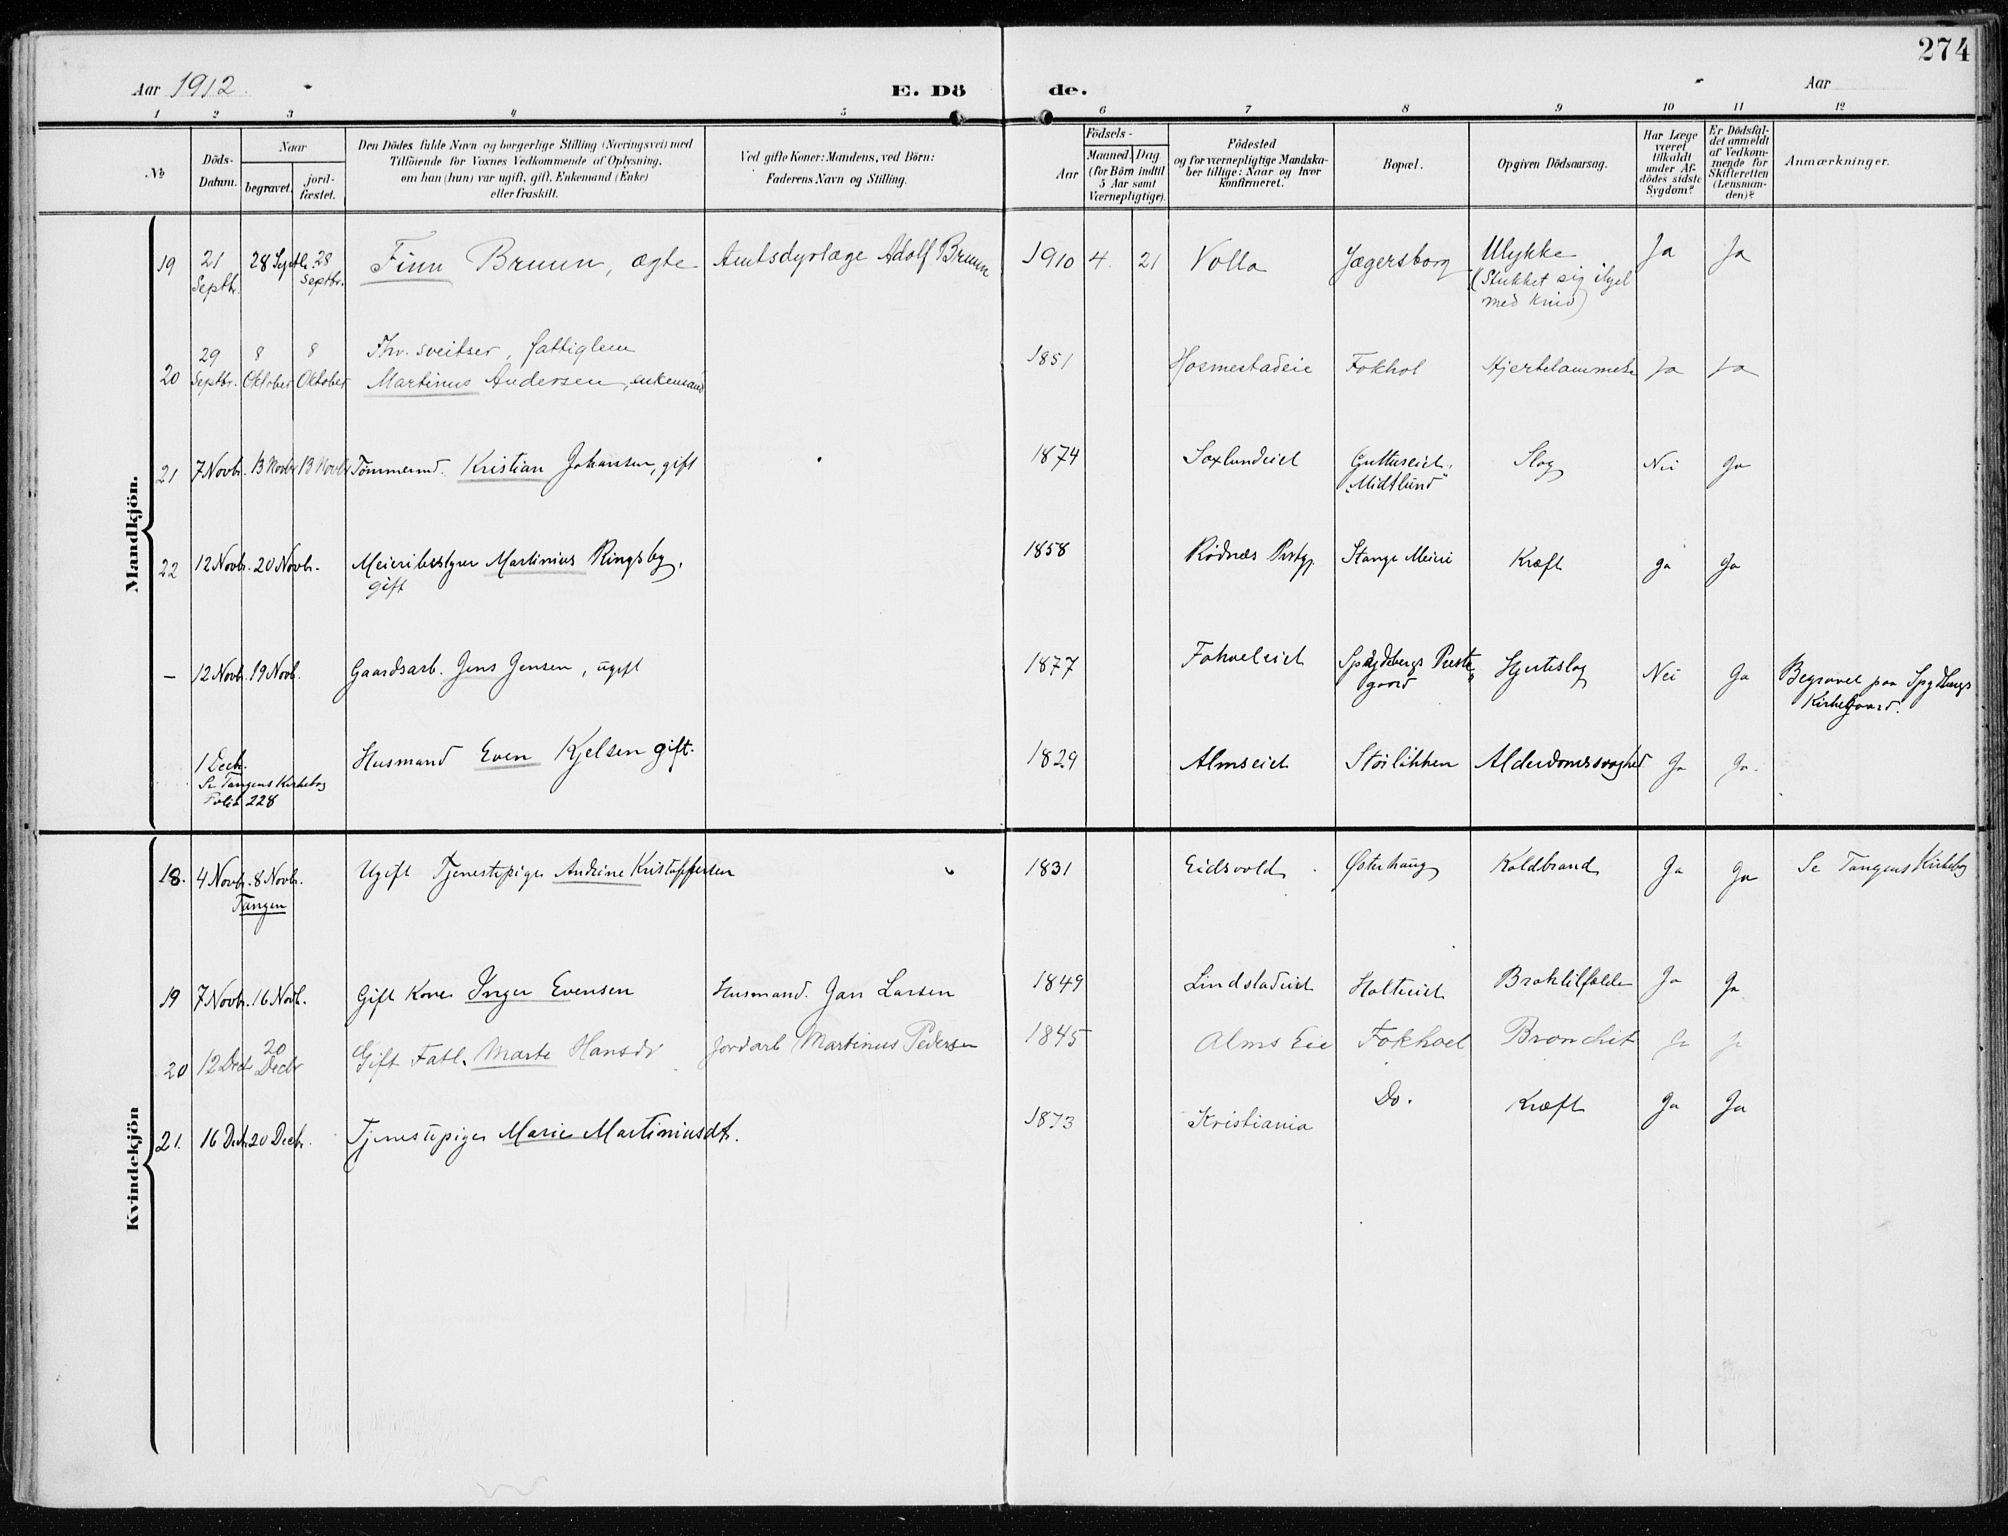 274
Aar 1912. E. Dö de. Aar
1 2 3 4 5 6 7 8 9 10 11 12
№ Döds-Datum. Naar begravet. jordfæstet. Den Dödes fulde Navn og borgerlige Stilling (Næringsvei) med Tilföiende for Voxnes Vedkommende af Oplysning, om han (hun) var ugift, gift, Enkemand (Enke) eller fraskilt. Ved gifte Koner: Mandens, ved Börn: Faderens Navn og Stilling. Födsels- Aar Maaned. Dag (for Börn indtil 5 Aar samt Værnepligtige). Födested og for værnepligtige Mandskaber tillige: Naar og hvor konfirmeret. Bopæl. Opgiven Dödsaarsag. Har Læge været tilkaldt under Afdödes sidste Sygdom? Er Dödsfaldet anmeldt af Vedkommende for Skifteretten (Lensmanden)? Anmærkninger.
Mandkjön.
19 21 Septbr. 28 Septbr. 28 Septbr. Finn Bruun, ægte Amtsdyrlæge Adolf Bruun 1910 4. 21 Volla Jægersborg Ulykke (Stukket sig ihjel med kniv) Ja Ja
20 29 Septbr. 8 Oktober 8 Oktober Fhv. sveitser, fattiglem Martinus Andersen, enkemand 1851 Hosmestadeie Fokhol Hjertelammelse Ja Ja
21 7 Novb. 13 Novbr 13 Novbr Tømmermd. Kristian Johansen, gift 1874 Saxlundeiet Guttuseiet, "Midtlund" Slag Nei Ja
22 12 Novb. 20 Novb. Meieribestyrer Martinius Ringsby, gift 1858 Rødnæs Prstgj. Stange Meieri Kræft Ja Ja
– 12 Novb. 19 Novb. Gaardsarb. Jens Jensen, ugift 1877 Fokoleiet Spydebergs Prestegaard Hjerteslag Nei Ja Begravet paa Spydbergs Kirkegaard.
1 Decb. Se Tangens Kirkebog Folio 228 Husmand Even Kjelsen gift. 1829 Almseiet Støiløkken Alderdomssvaghed Ja Ja.
Kvindekjön
18. 4 Novb. 8 Novb. Tangen Ugift Tjenestepige Andrine Kristoffersen 1831 Eidsvold Østerhaug Koldbrand Ja Ja Se Tangens Kirkebog
19 7 Novb. 16 Novb. Gift Kone Inger Evensen Husmand. Jan Larsen 1849 Lindstadeiet Holteiet Broktilfælde Ja Ja
20 12 Decb 20 Decbr Gift Fatl. Marte Hansdr Jordarb Martinus Pedersen 1845 Alms Eie Fokhoel Bronchit Ja Ja
21. 16 Decb. 20 Decb. Tjenestepige Marie Martiniusdt. 1873 Kristiania Do. Kræft Ja Ja